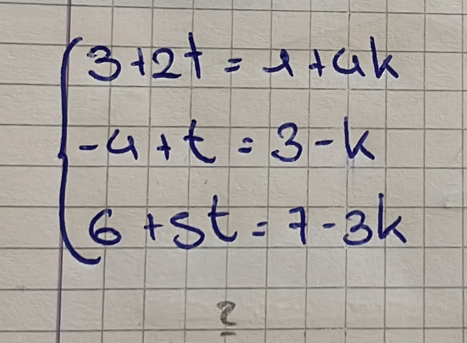 3+2t = 1+4k
-4+t = 3-k
6+5t = 7-3k
?